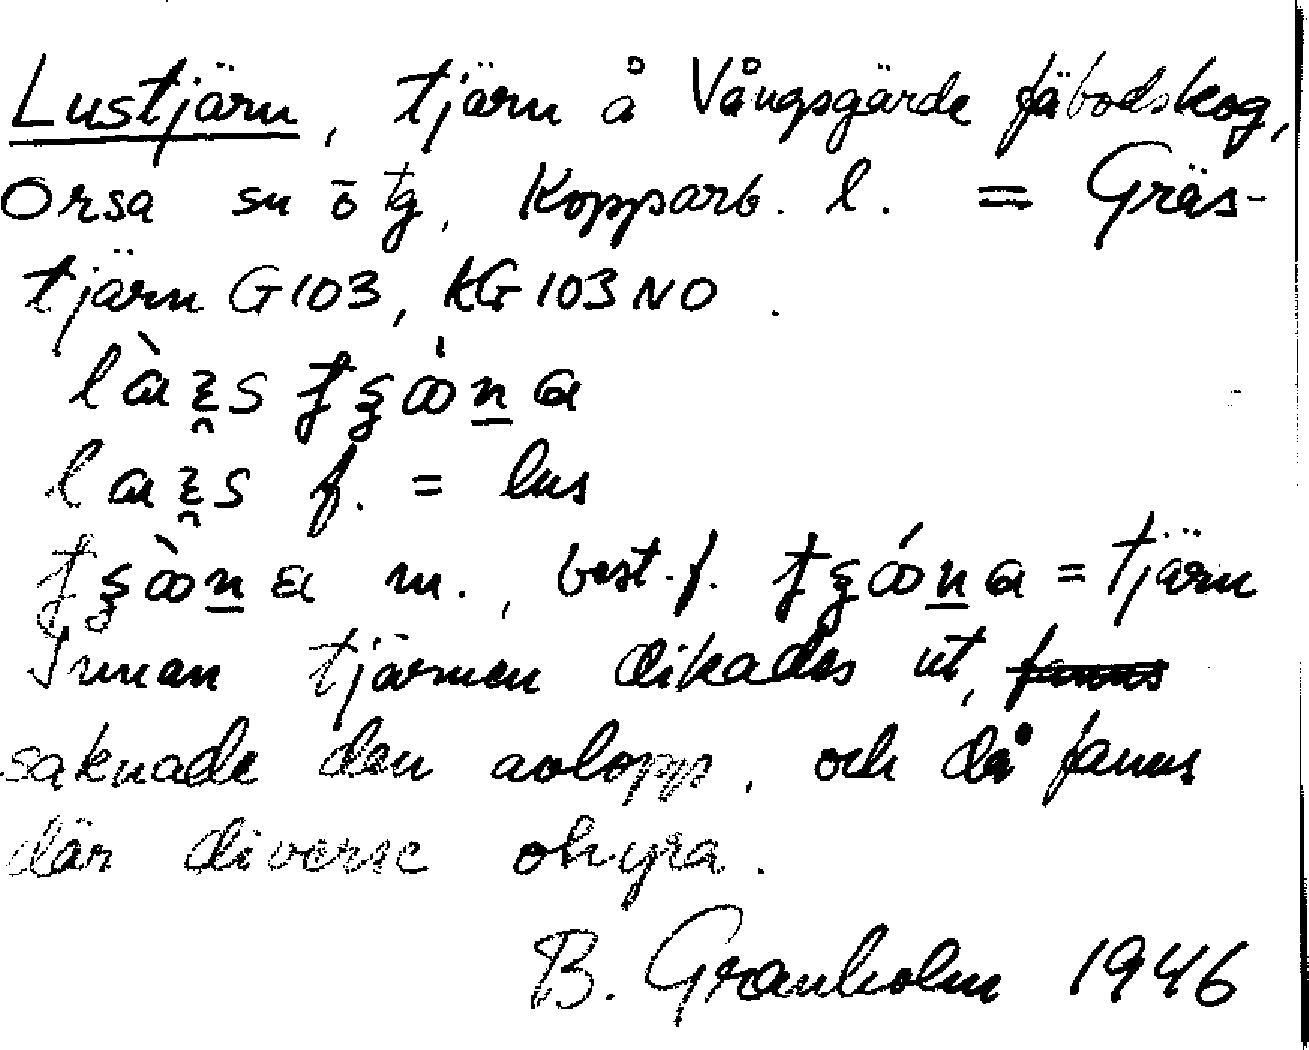 Lustjärn, tjärn å Vångsgärde fäbodskog,
Orsa sn ö tg, Kopparb. l. = Gräs-
tjärn G103, KG 103 NO.
f. = lus
m., best. f. = tjärn
Innan tjärnen dikades ut, fanns
saknade den avlopp, och då fanns
där diverse ohyra.
B. Granholm 1946